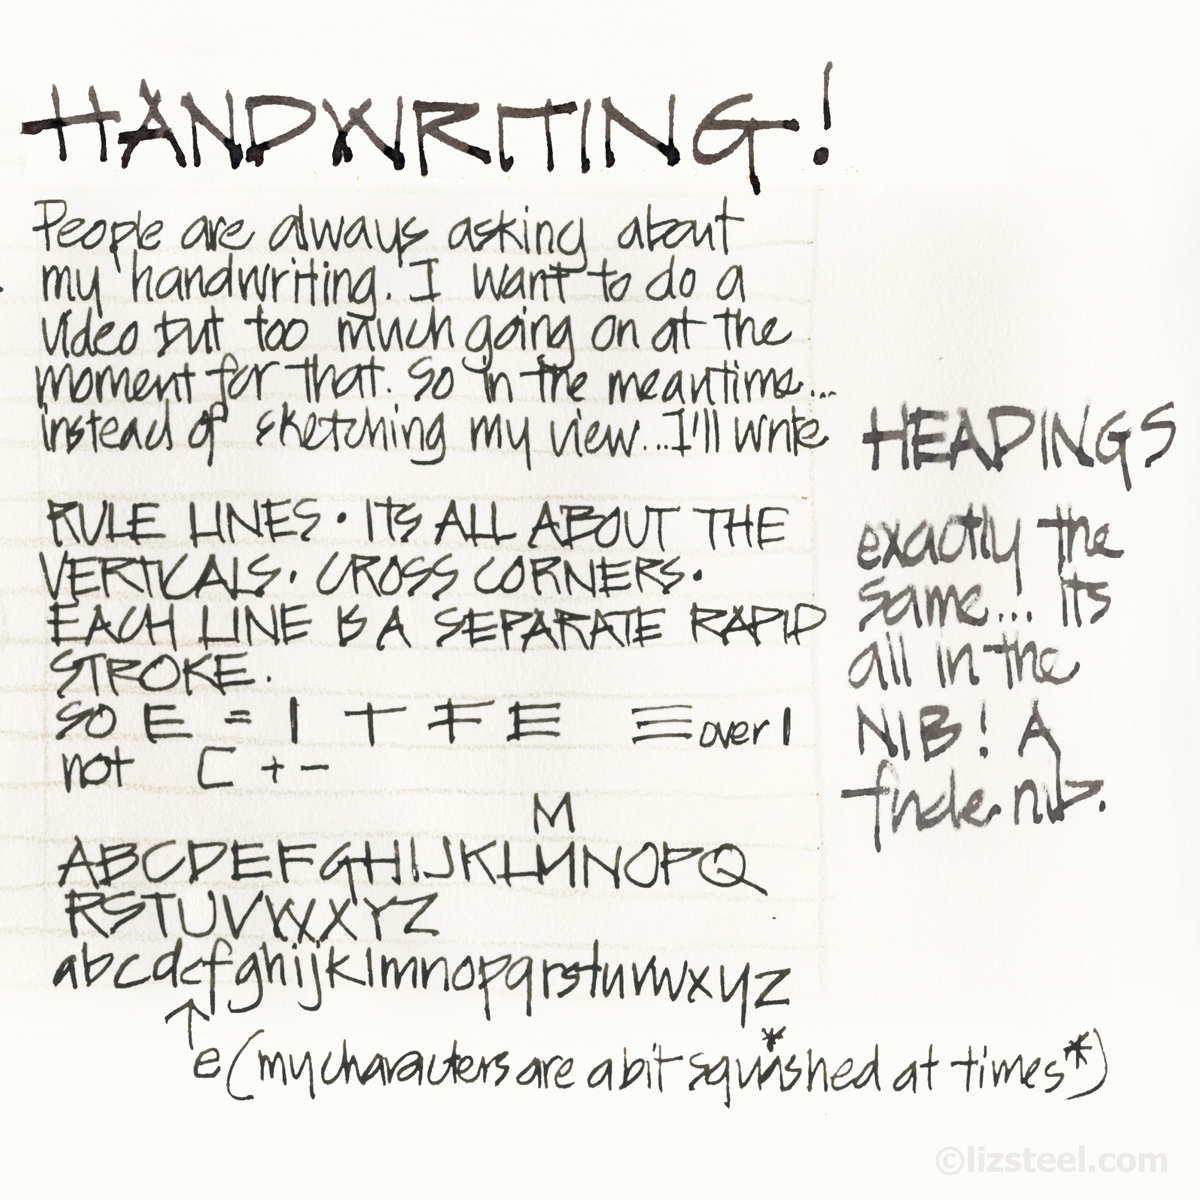 HANDWRITING!
People are always asking about
my handwriting. I want to do a
video but too much going on at the
moment for that. So in the meantime...
instead of sketching my view...I'll write
RULE LINES • ITS ALL ABOUT THE
VERTICALS. CROSS CORNERS.
EACH LINE IS A SEPARATE RAPID
STROKE.
SO E = I T F E ☰ over I
not C + –
M
ABCDEFGHIJKLMNOPQ
RSTUVWXYZ
abcdefghijklmnopqrstuvwxyz
↑
e (my characters are a bit squashed* at times*)
HEADINGS
exactly the
same... its
all in the
NIB! A
finde nib.
©lizsteel.com